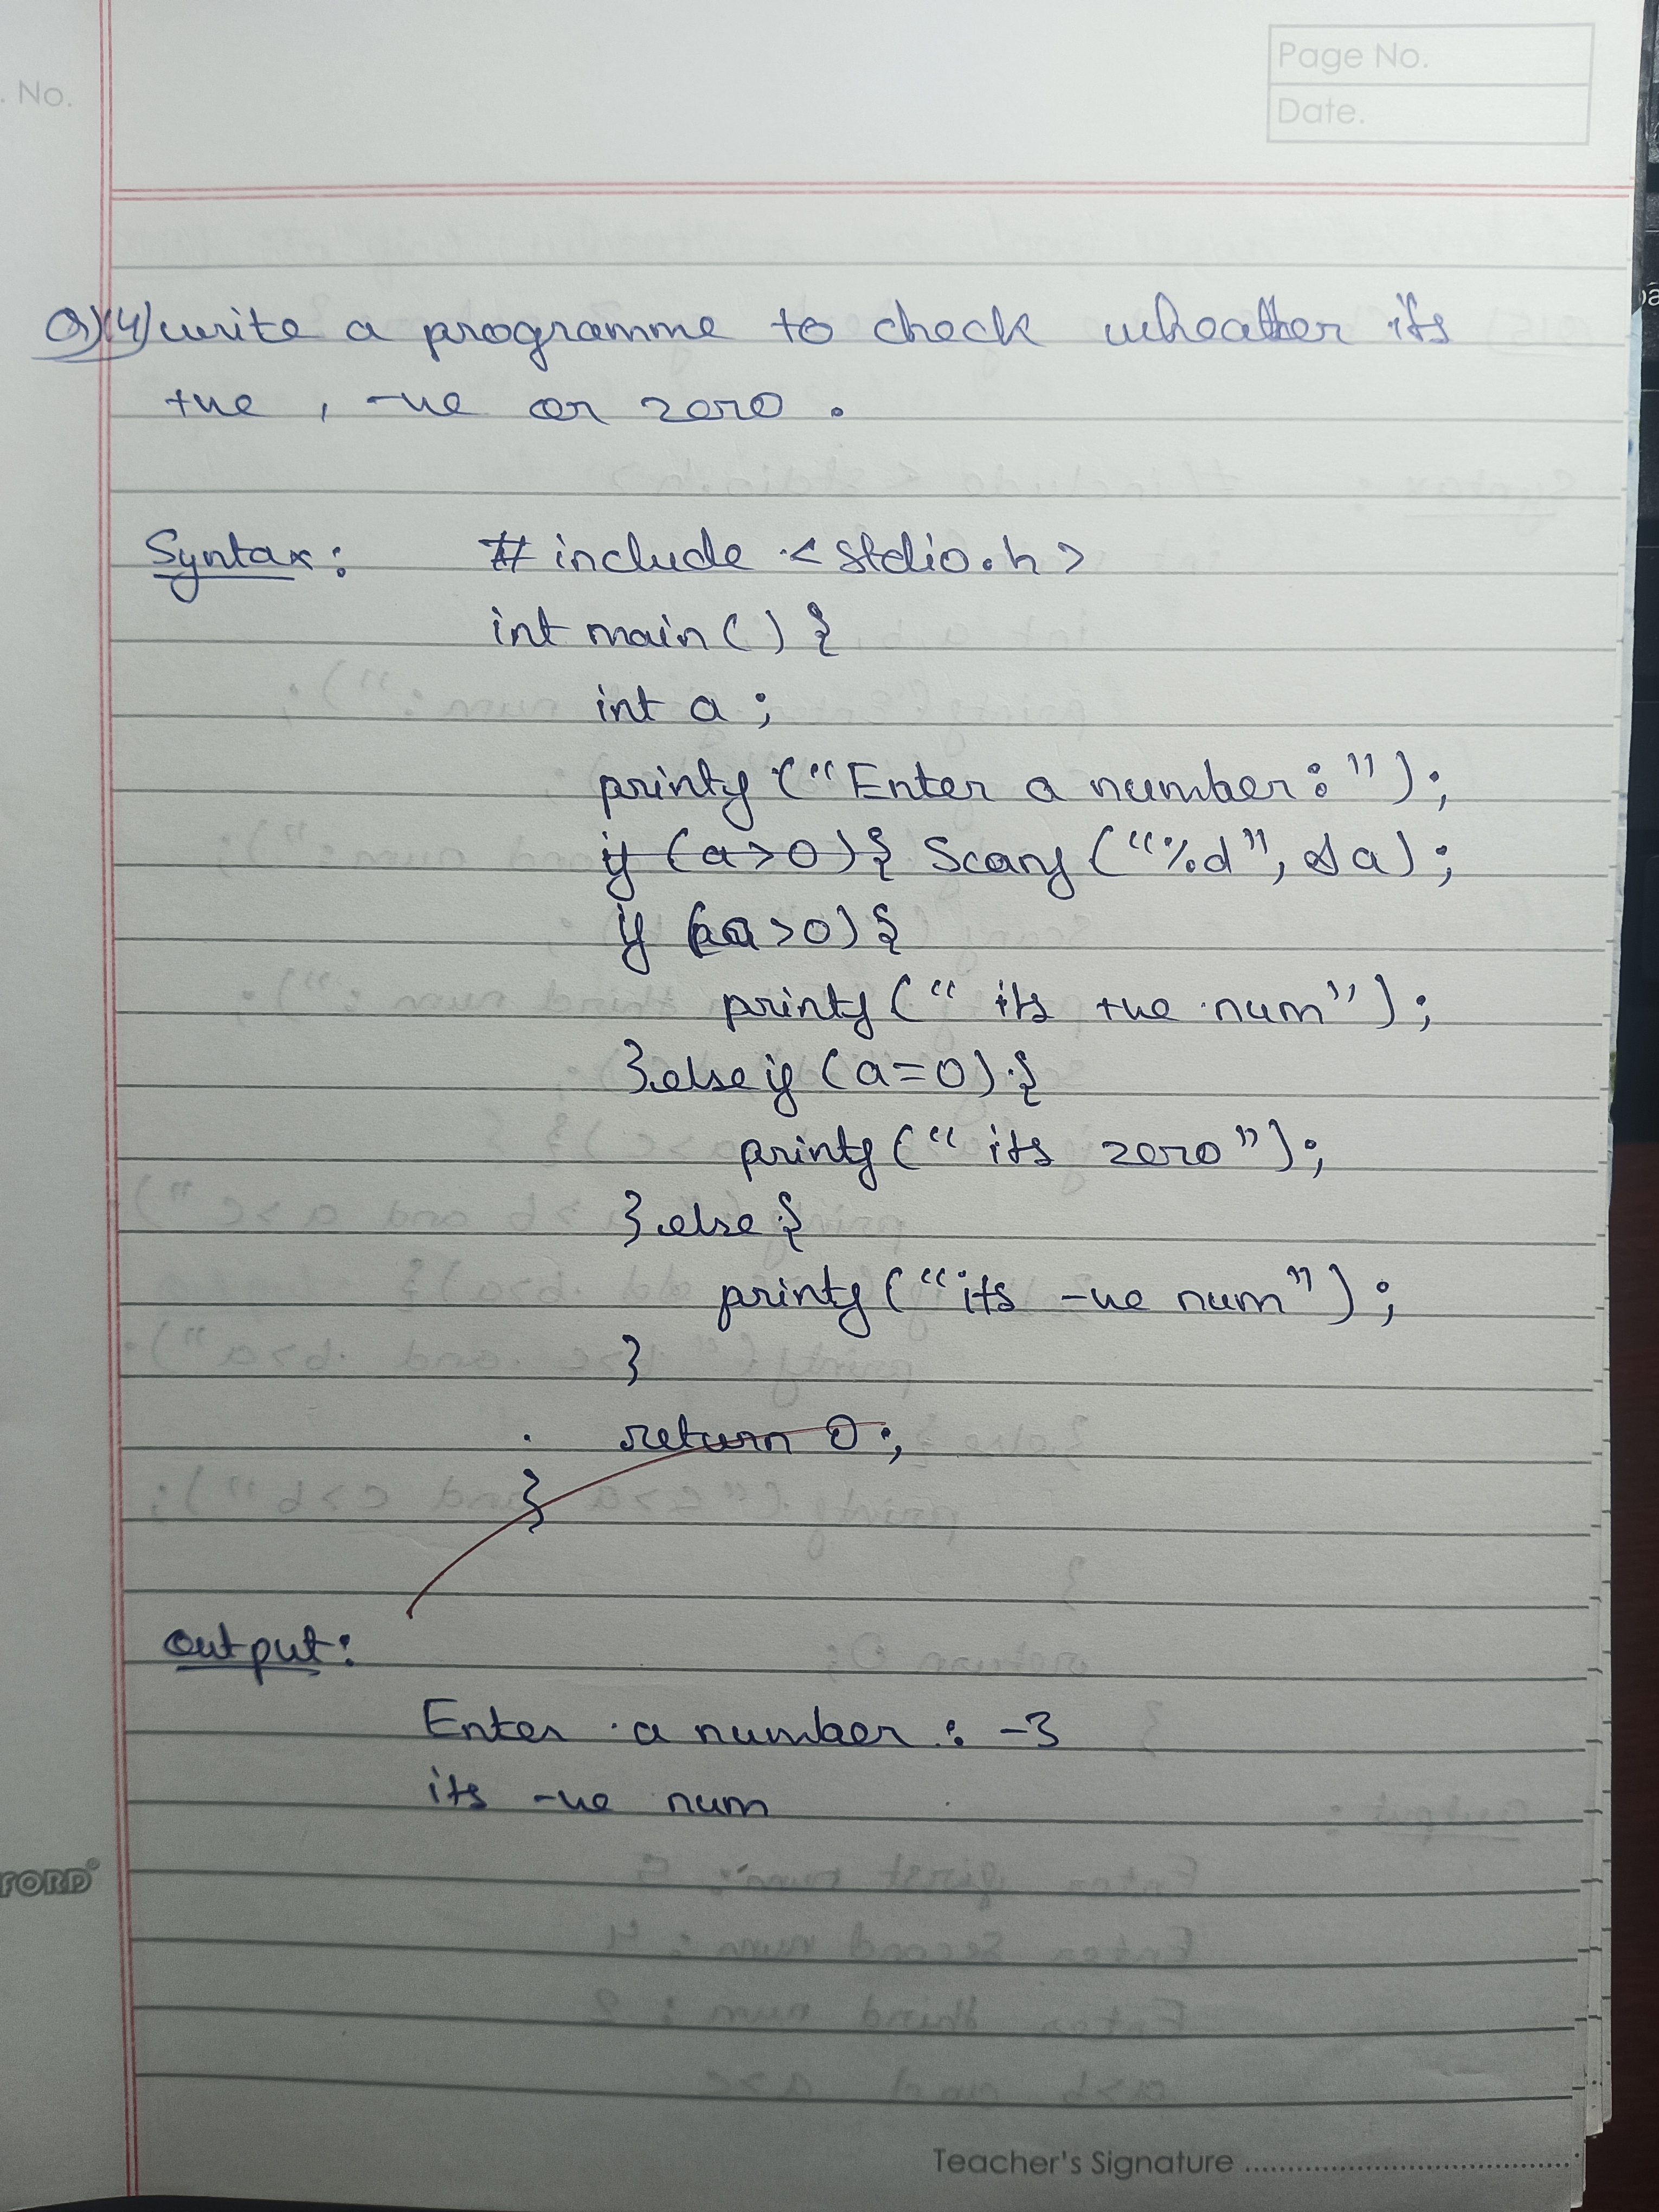 . No.
Page No.
Date.
Q)(4) write a programme to check wheather its
+ve , -ve or zero .
Syntax : # include < stdio.h >
int main () {
int a ;
printf ("Enter a number : ") ;
if (a>0) { Scanf ("%d", &a) ;
if (a>0) {
printf (" its +ve num") ;
} else if (a=0) {
printf (" its zero") ;
} else {
printf ("its -ve num") ;
}
return 0 ;
}
Output :
Enter a number : -3
its -ve num
FORD
Teacher's Signature